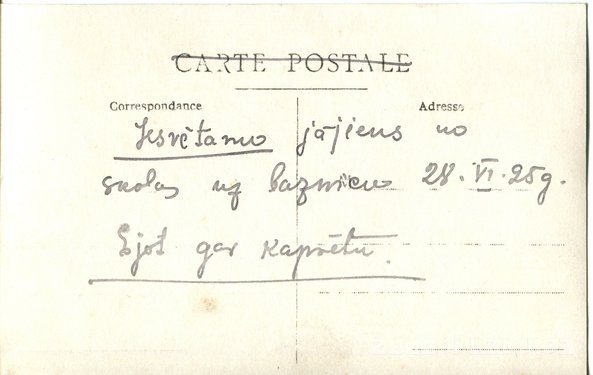 CARTE POSTALE
Correspondance
Adresse
Iesvētamo jājiens no
skolas uz baznicu 28. VI. 25g.
Ejot gar kapsētu.